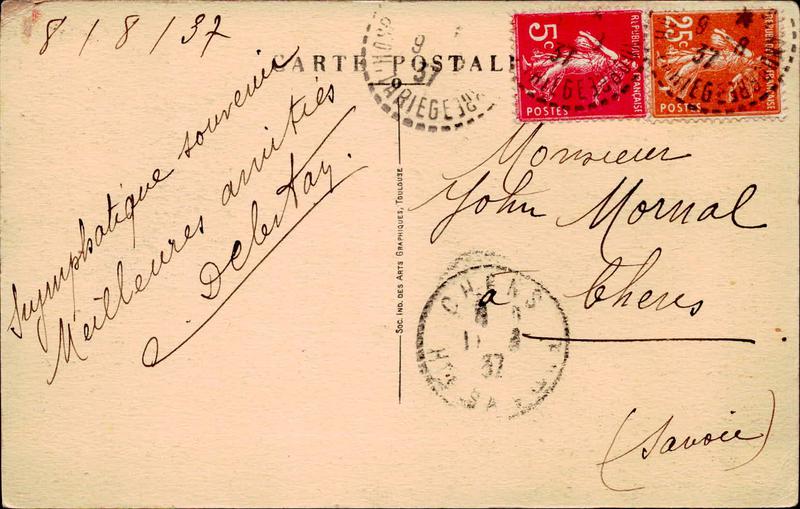 8/8/37
CARTE POSTALE
Sympathique souvenir
Meilleures amitiés
5c
REPUBLIQUE FRANÇAISE
POSTES
25c
REPUBLIQUE FRANÇAISE
POSTES
9
37
ARIEGE
Monsieur
John Mornal
à Chens
(Savoie)
CHENS
11 8
37
Soc. Ind. des Arts Graphiques, Toulouse